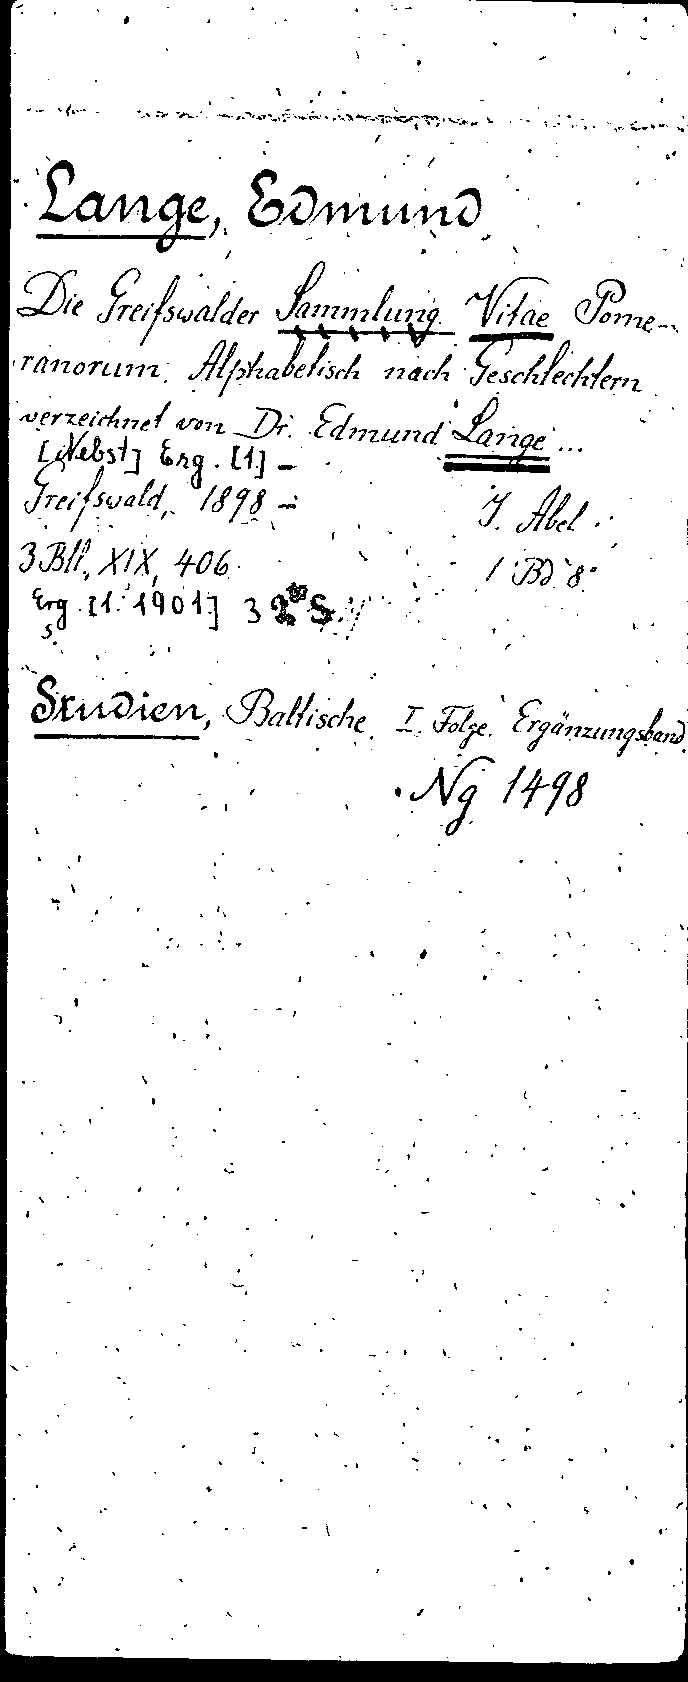 Lange, Edmund
Die Greifswalder Sammlung Vitae Pome-
ranorum. Alphabetisch nach Geschlechtern
verzeichnet von Dr. Edmund Lange ...
[Nebst] Erg. [1] -
Greifswald, 1898 - J. Abel.
3 Bll., XIX, 406 1 Bd 8°
s.
Erg. [1. 1901] 3 S.
Studien, Baltische. I. Folge. Ergänzungsband.
Ng 1498